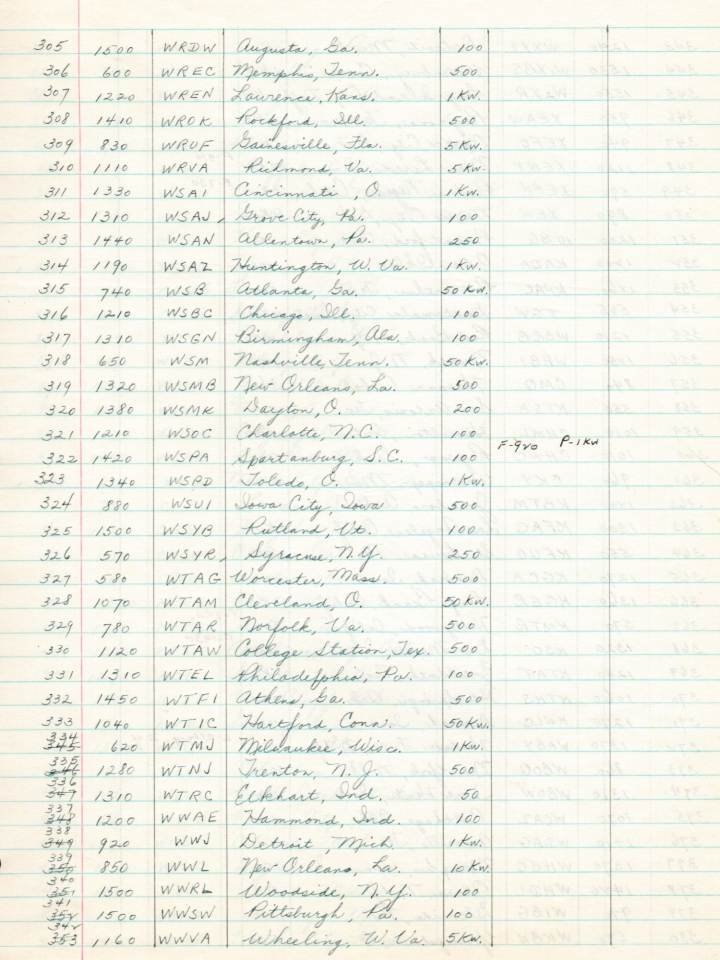 305 1500 WRDW Augusta, Ga. 100
306 600 WREC Memphis, Tenn. 500
307 1220 WREN Lawrence, Kans. 1 KW.
308 1410 WROK Rockford, Ill. 500
309 830 WRUF Gainesville, Fla. 5 KW.
310 1110 WRVA Richmond, Va. 5 KW.
311 1330 WSAI Cincinnati, O. 1 KW.
312 1310 WSAJ, Grove City, Pa. 100
313 1440 WSAN Allentown, Pa. 250
314 1190 WSAZ Huntington, W. Va. 1 KW.
315 740 WSB Atlanta, Ga. 50 KW.
316 1210 WSBC Chicago, Ill. 100
317 1310 WSGN Birmingham, Ala. 100
318 650 WSM Nashville, Tenn. 50 KW.
319 1320 WSMB New Orleans, La. 500
320 1380 WSMK Dayton, O. 200
321 1210 WSOC Charlotte, N.C. 100
322 1420 WSPA Spartanburg, S.C. 100 F-920 P-1KW
323 1340 WSPD Toledo, O. 1 KW.
324 880 WSUI Iowa City, Iowa 500
325 1500 WSYB Rutland, Vt. 100
326 570 WSYR, Syracuse, N.Y. 250
327 580 WTAG Worcester, Mass. 500
328 1070 WTAM Cleveland, O. 50 KW.
329 780 WTAR Norfolk, Va. 500
330 1120 WTAW College Station, Tex. 500
331 1310 WTEL Philadelphia, Pa. 100
332 1450 WTFI Athens, Ga. 500
333 1040 WTIC Hartford, Conn. 50 KW.
334
345 620 WTMJ Milwaukee, Wisc. 1 KW.
335
346 1280 WTNJ Trenton, N.J. 500
336
347 1310 WTRC Elkhart, Ind. 50
337
348 1200 WWAE Hammond, Ind. 100
338
349 920 WWJ Detroit, Mich. 1 KW.
339
350 850 WWL New Orleans, La. 10 KW.
340
351 1500 WWRL Woodside, N.Y. 100
341
352 1500 WWSW Pittsburgh, Pa. 100
342
353 1160 WWVA Wheeling, W. Va. 5 KW.